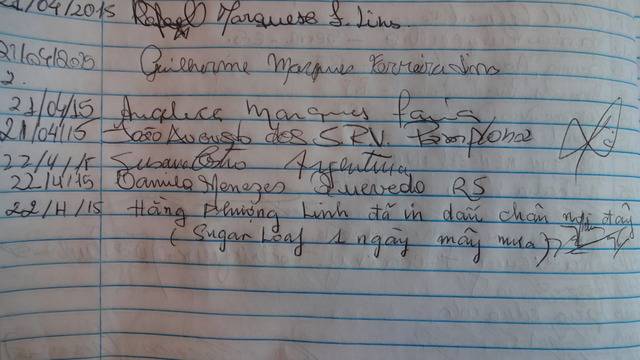 21/04/2015 Rafael Marquese S. Lins.
21/04/2015 Guilherme Marques Ferreira Lins
21/04/15 Angelica Marques Faria
21/04/15 João Augusto dos S. R.V. Pamplona
22/4/15 Susana Argentina
22/4/15 Camila Menezes Quevedo RS
22/4/15 Hằng Phương Linh đã in dấu chân nơi đây
(Sugar Loaf 1 ngày mây mưa)